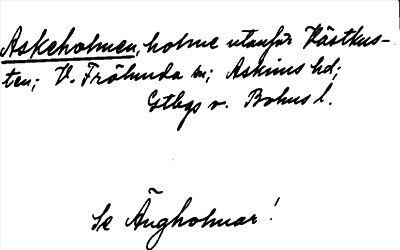 Askeholmen, holme utanför Västkus-
ten; V. Frölunda sn; Askims hd;
Gtbgs o. Bohus l.
Se Ängholmar!